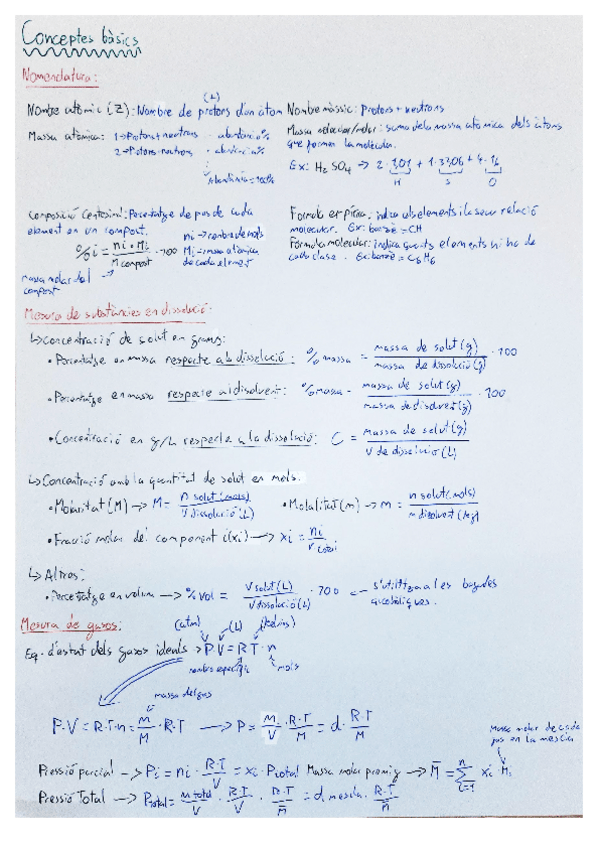 Conceptes bàsics
Nomenclatura:
(Z)
Nombre atòmic (Z): Nombre de protons d'un àtom Nombre màssic: protons + neutrons
Massa atòmica: 1→Protons + neutrons · abundància%
2→Protons + neutrons · abundància%
Abundància = 100%
Massa molecular/molar: suma de la massa atòmica dels àtoms
que formen la molècula.
Ex: H₂SO₄ → 2·1,01 + 1·32,06 + 4·16
H S O
Composició centesimal: Percentatge de pes de cada
element en un compost.
%i = ni · Mi / M compost · 100
ni → nombre de mols
Mi → massa atòmica
de cada element
massa molar del
compost
Fórmula empírica: indica els elements i la seva relació
molecular. Ex: benzè = CH
Fórmula molecular: indica quants elements hi ha de
cada classe. Ex: benzè = C₆H₆
Mesura de substàncies en dissolució:
↳ Concentració de solut en grams:
• Percentatge en massa respecte a la dissolució: % massa = massa de solut (g) / massa de dissolució (g) · 100
• Percentatge en massa respecte al disolvent: % massa = massa de solut (g) / massa de disolvent (g) · 100
• Concentració en g/L respecte a la dissolució: C = massa de solut (g) / V de dissolució (L)
↳ Concentració amb la quantitat de solut en mols:
• Molaritat (M) → M = n solut (mols) / V dissolució (L) • Molalitat (m) → m = n solut (mols) / m disolvent (kg)
• Fracció molar del component i (xi) → xi = ni / n total
↳ Altres:
• Percentatge en volum → % vol = V solut (L) / V dissolució (L) · 100 ← S'utilitza a les begudes
alcohòliques.
Mesura de gasos:
(atm) (L) (Kelvins)
Eq. d'estat dels gasos ideals → P V = R T · n
mols
massa del gas
P·V = R·T·n = m/M · R·T → P = m/V · R·T/M = d · R·T/M
Massa molar de cada
gas en la mescla
Pressió parcial → Pi = ni · R·T/V = xi · Ptotal Massa molar promig → M̄ = Σ xi · Mi
n
i=1
Pressió Total → Ptotal = m total/V · R·T/V · R·T/M̄ = d mescla · R·T/M̄